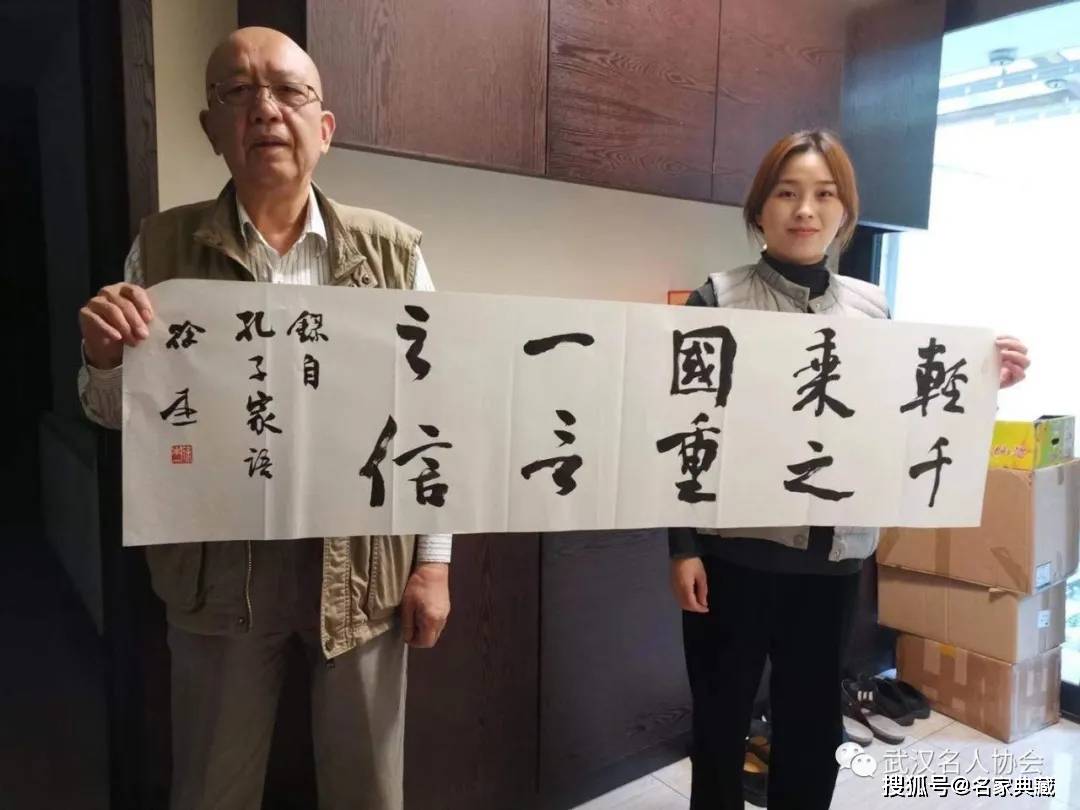 輕千
乘之
國重
一言
之信
錄自
孔子家语
徐
武汉名人协会
搜狐号@名家典藏